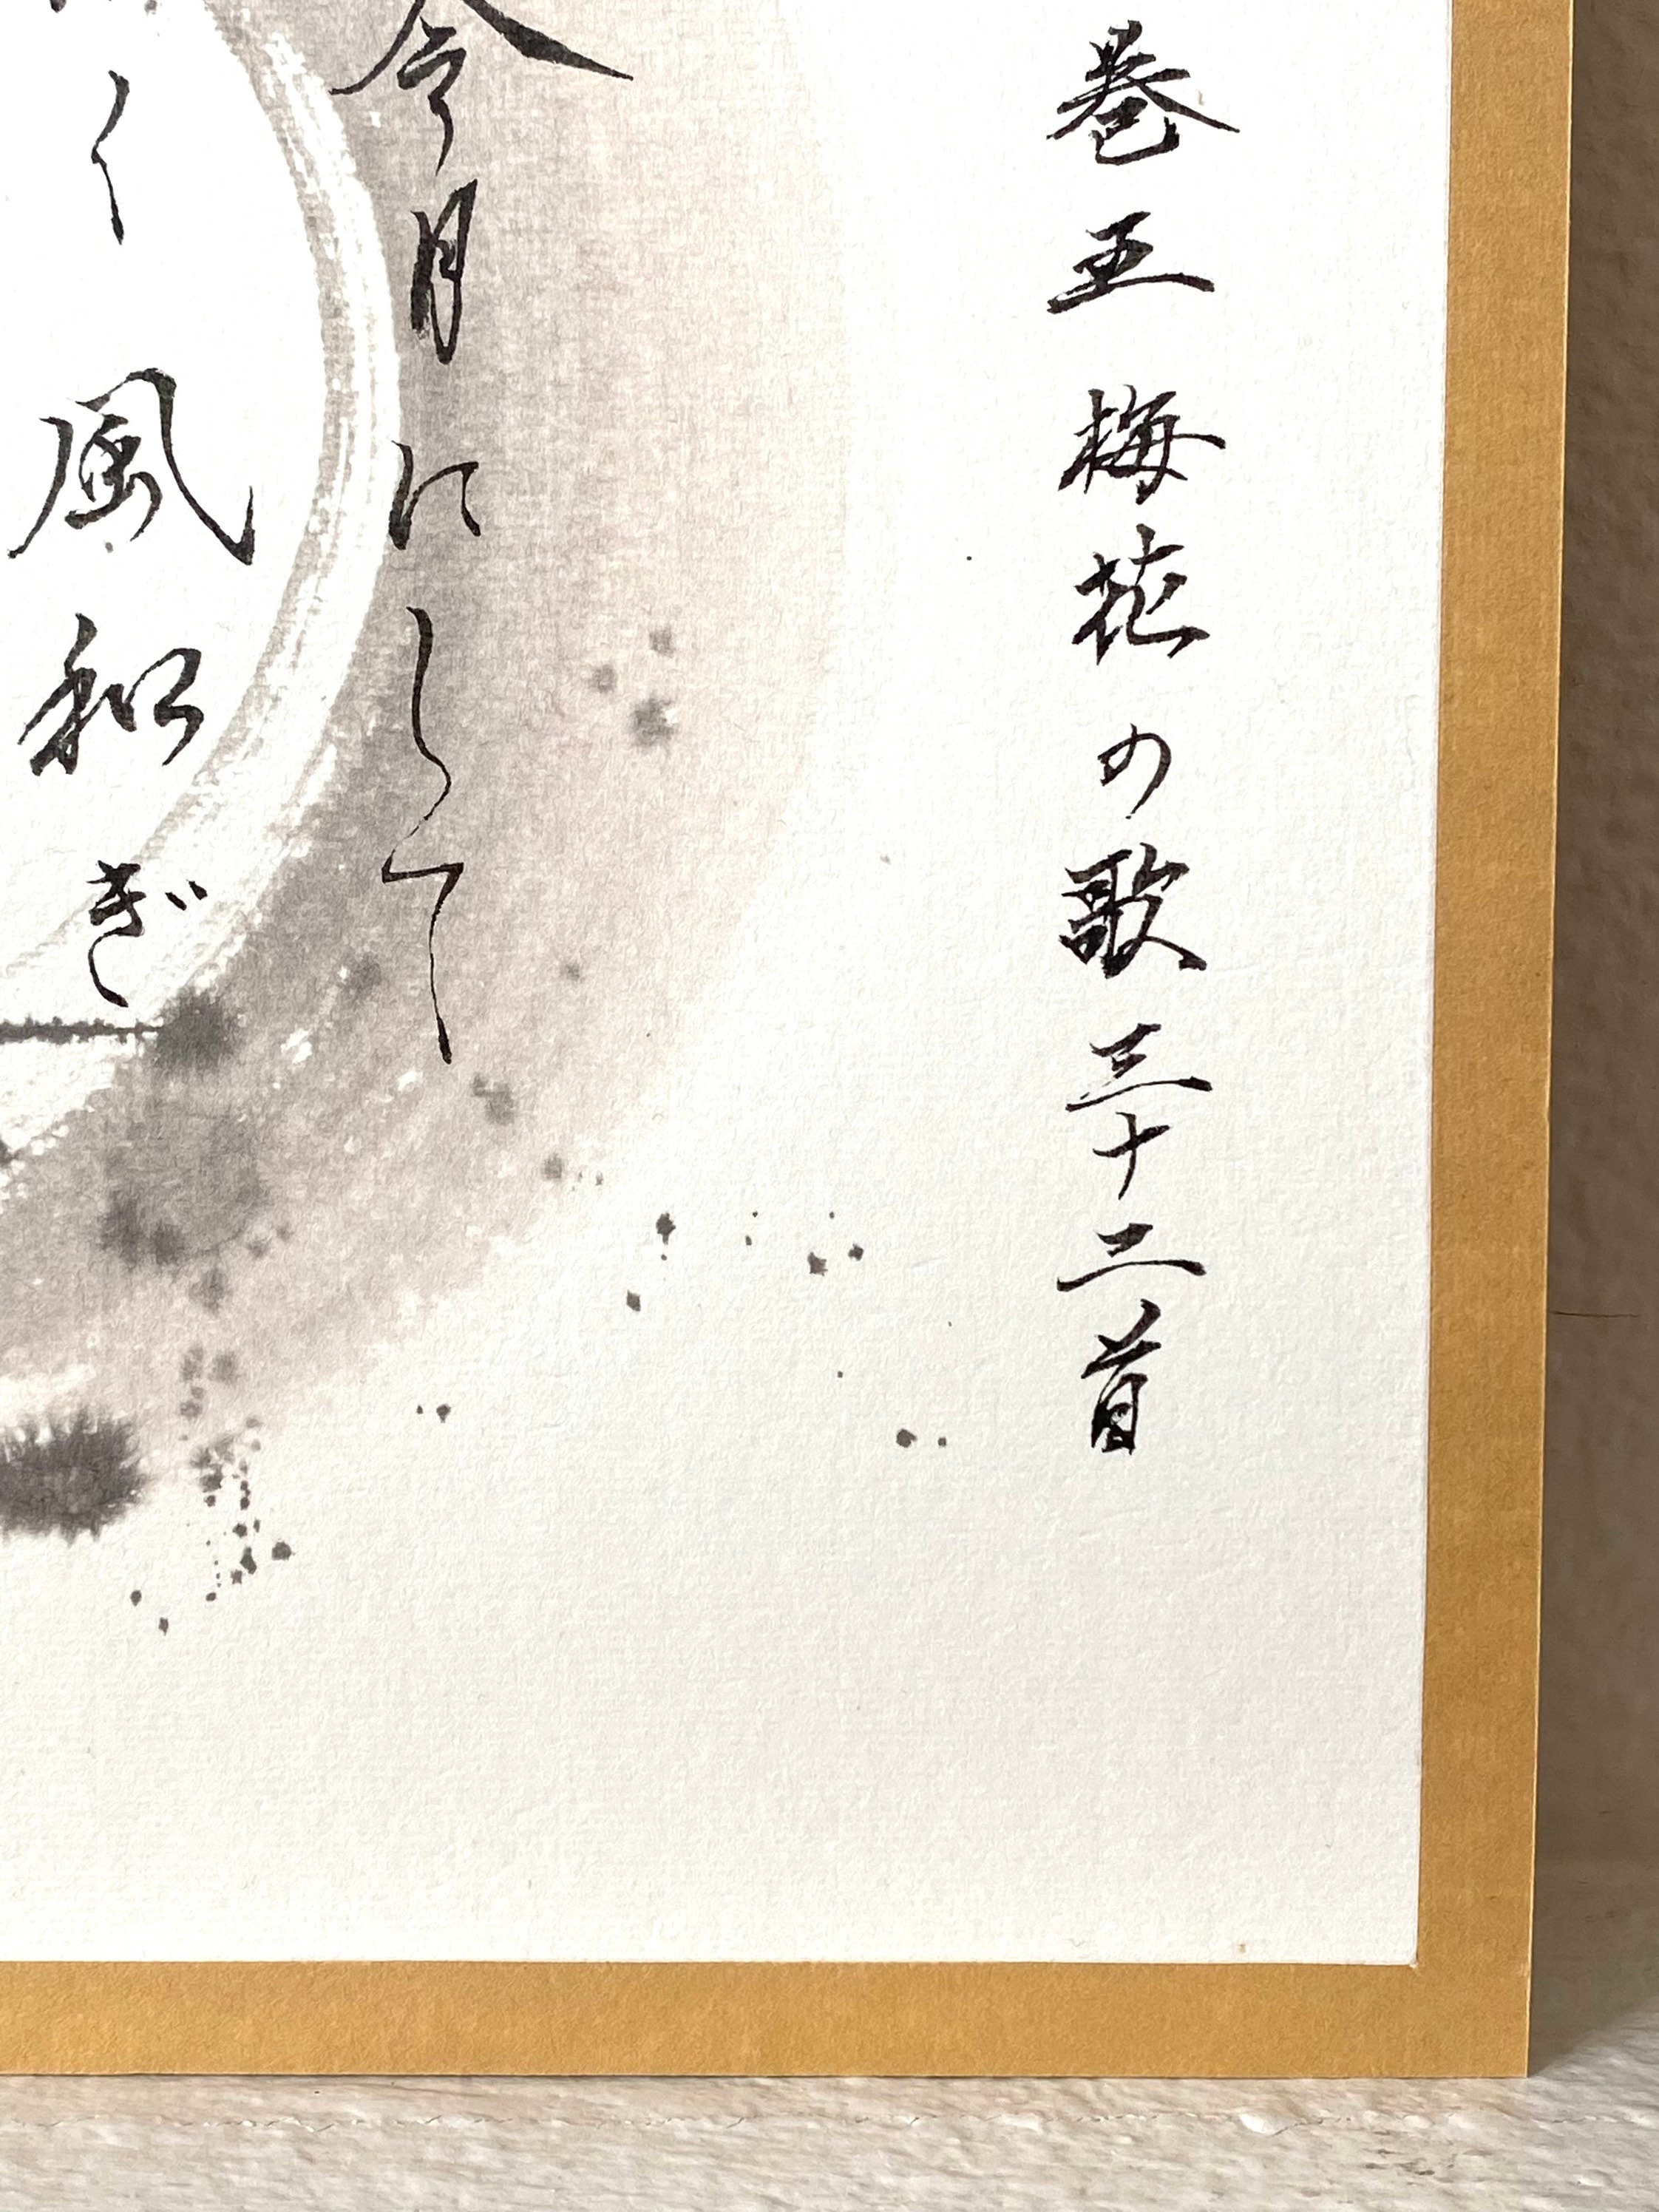 巻五 梅花の歌三十二首
令月にして
く 風和ぎ